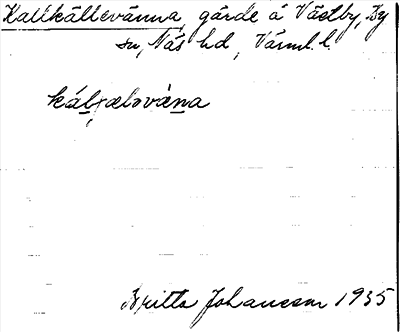 Kallkällevänna, gärde å Västby, By
sn, Näs hd, Värml. l.
kálɟælována
Britta Johansson 1935